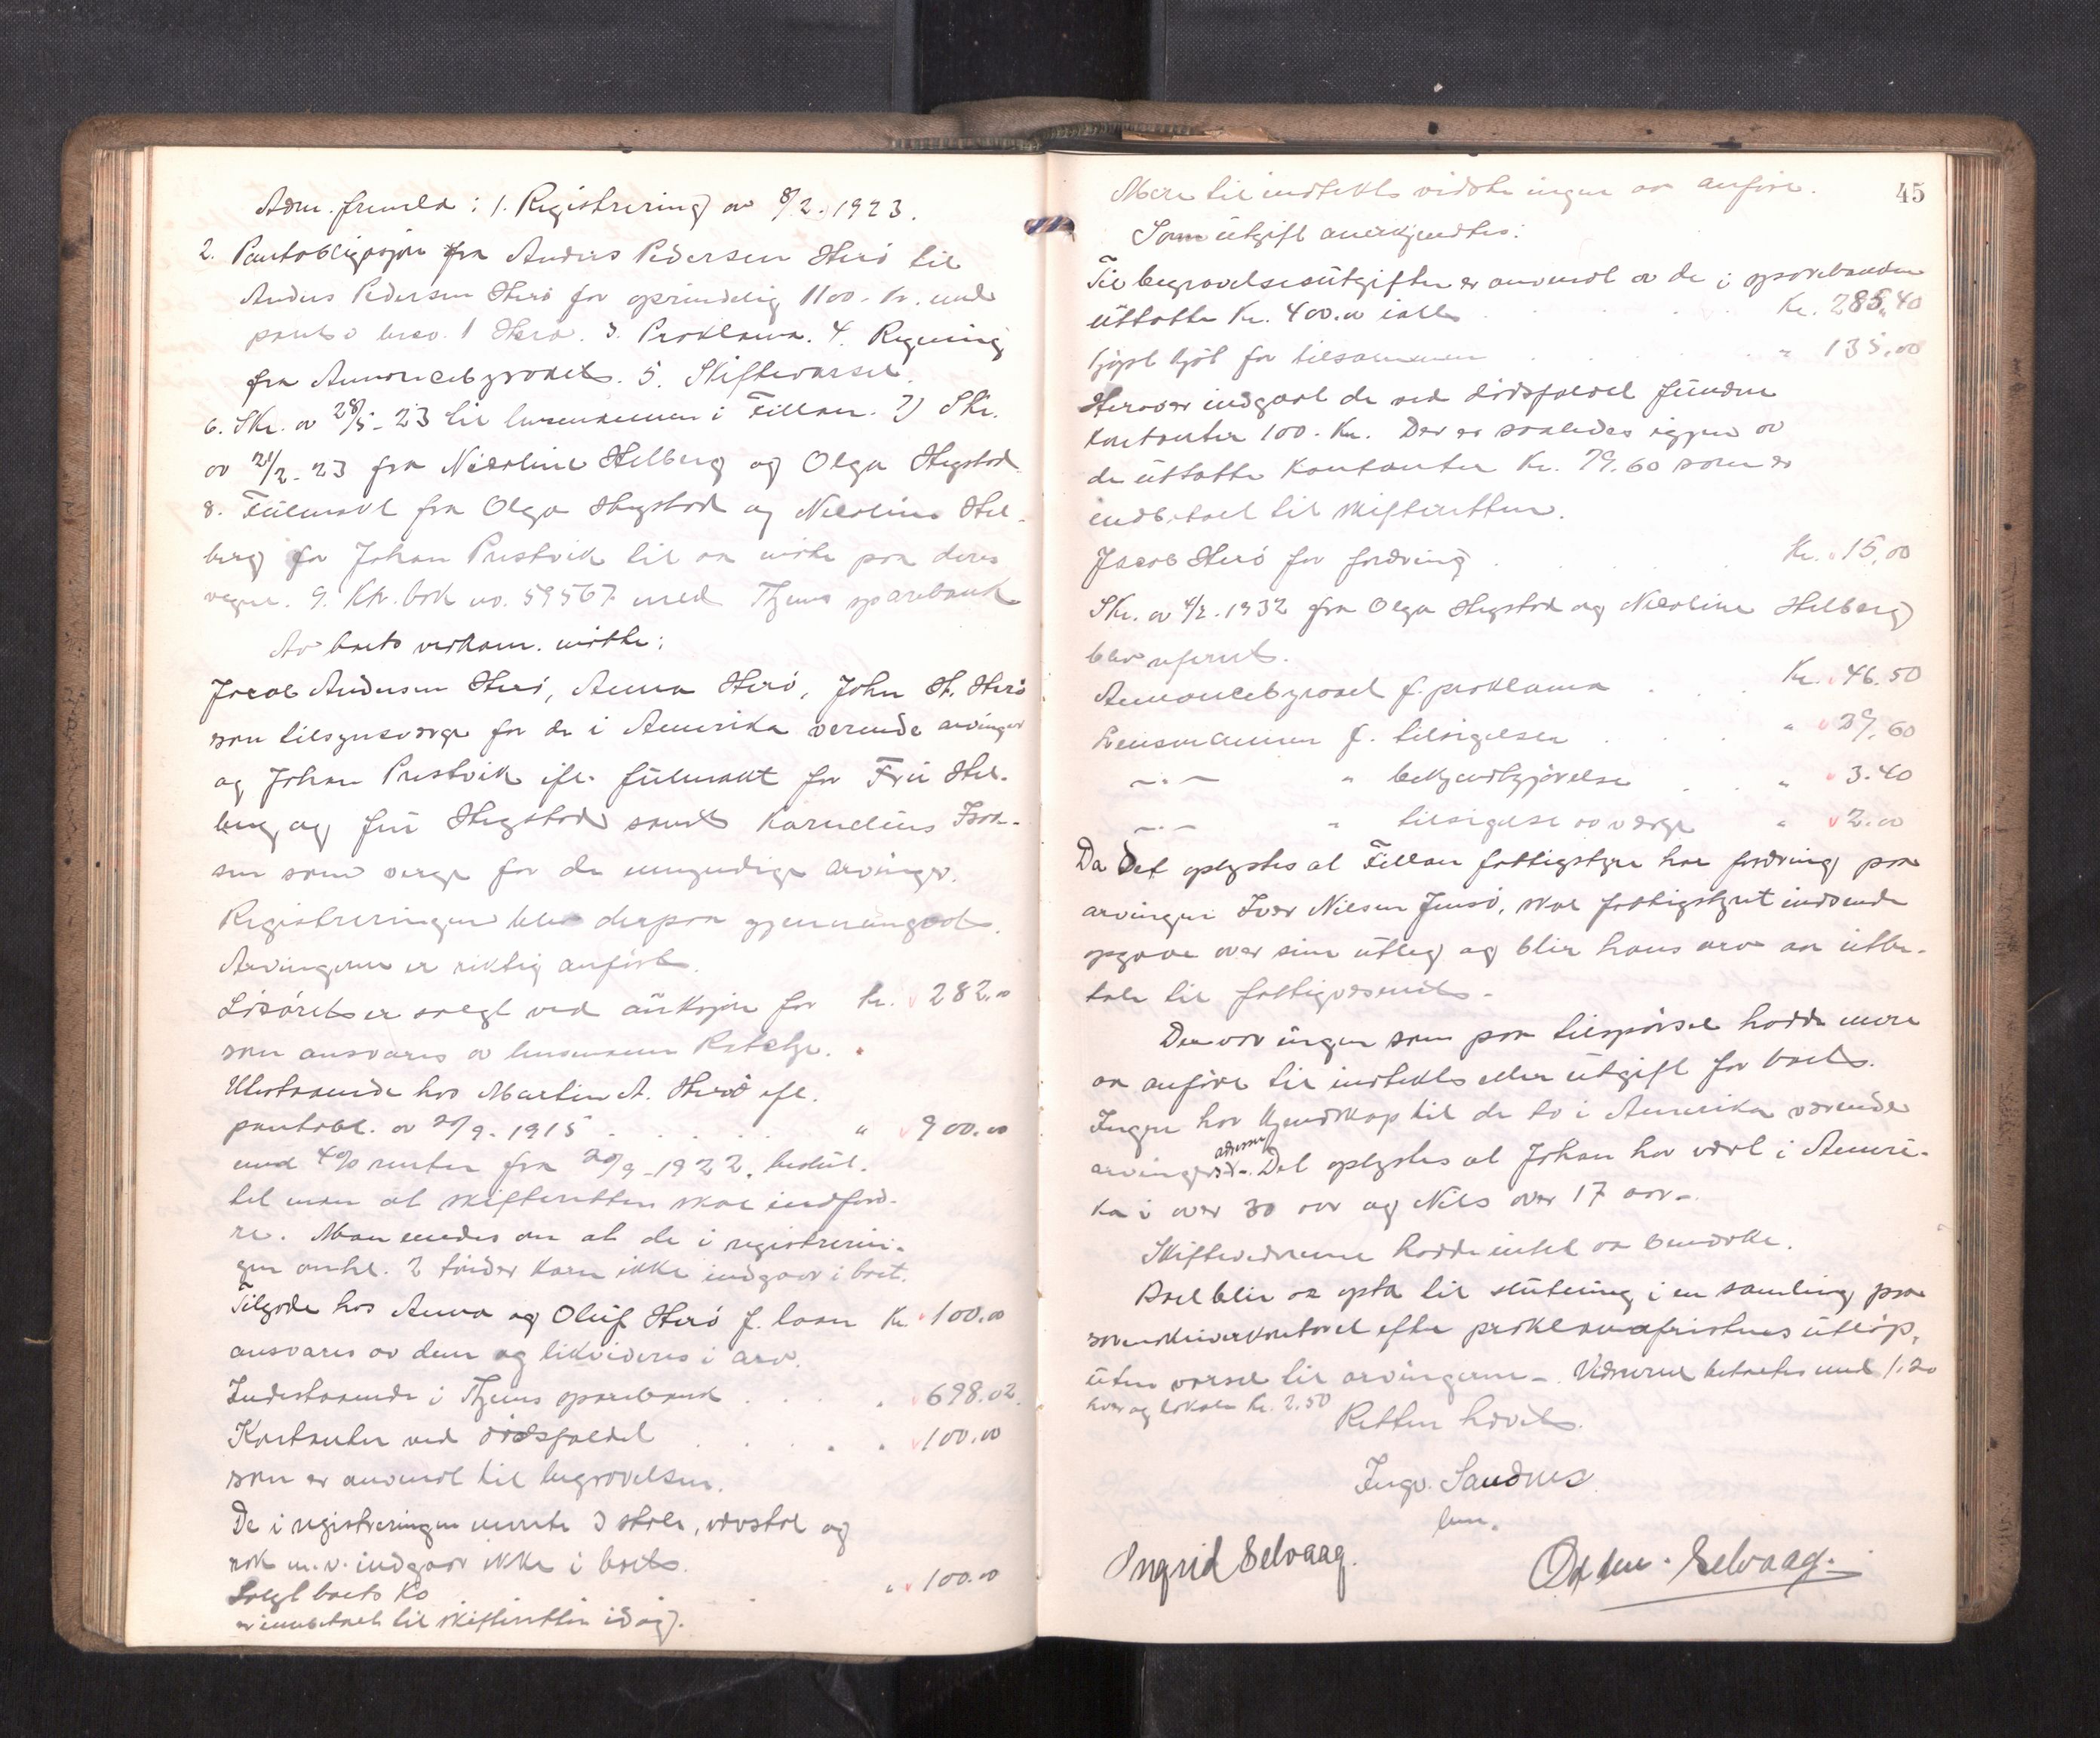 Adm. fremla: 1. Registrering av 8/2. 1923.
2. Pantobligasjon fra Anders Pedersen Herö til
Anders Pedersen Herö for oprindelig 1100.- kr. med
pant i brno. 1 Herö. 3. Proklama. 4. Regning
fra Annoncebyraaet. 5. Skiftevarsel.
6. Skr. av 28/5-23 til lensmannen i Fillan. 7) Skr.
av 21/2-23 fra Nicoline Helberg og Olga Hegstad
8. Fullmakt fra Olga Hegstad og Nicoline Hel-
berg for Johan Prestvik til aa möte paa deres
vegne. 9. Ktr. bok no. 59567 med Thjems sparebank
Av boets vedkom. mötte:
Jacob Andersen Herö, Anna Herö, John H. Herö
som tilsynsverge for de i Amerika verende arvinger
og Johan Prestvik ifl. fullmakt for Fru Hel-
berg og fru Hegstad samt Kornelius Isak-
sen som verge for de umyndige arvinger.
Registreringen blev derpaa gjennemgaat.
Arvingerne er riktig anfört.
Lösöret er solgt ved auksjon for kr. 282.00
som ansvares av lensmann
Utestaaende hos Martin A. Herö ifl.
pantobl. av 20/9. 1915 . . . . " 900.00
med 4% renter fra 20/9-1922. beslut-
tet man at skifteretten skal indford-
re. Man enedes om at de i registrerin-
gen omhl. 2 tönder korn ikke indgaar i boet.
Tilgode hos Anna og Oluf Herö f. laan Kr. 100.00
ansvares av dem og likvideres i arv.
Indestaaende i Thjems sparebank . . . 698.02
Kontanter ved dödsfaldet . . . . 100.00
som er anvendt til begravelsen.
De i registreringen nevnte 3 stoler, vevstol og
rok m.v. indgaar ikke i boet.
Solgt boets ko " 100.00
er innbetalt til skifteretten idag).
45
Mere til indtekt vidste ingen aa anföre.
Som utgift anerkjendtes:
Til begravelsesutgifter er anvendt av de i sparebanken
uttatte Kr. 400.00 ialt . . . . Kr. 285.40
kjöpt kjöt for tilsammen . . " 135.00
Herover indgaat de ved dödsfaldet fundne
kontanter 100.- Kr. Der er saaledes igjen av
de uttatte kontanter Kr. 79.60 som er
indbetalt til skifteretten.
Jacob Herö for fordring . . . Kr. 15.00
Skr. av 4/2. 1932 fra Olga Hegstad og Nicoline Helberg
blev referert.
Annoncebyraaet f. proklama . . . Kr. 46.50
Lensmannen f. tilsigelser . . . " 39.60
—"— " bekjendtgjörelse . . " 3.40
—"— " tilsigelse av verge " 2.00
Da det oplystes at Fillan fattigstyre har fordring paa
arvingen Iver Nilsen Jensö, skal fattigstyret indsende
opgave over sine utlegg og blir hans arv aa utbe-
tale til fattigvesenet.-
Der var ingen som paa tilspörsel hadde mere
aa anföre til indtekt eller utgift for boet.
Ingen har kjendskap til de to i Amerika værende
arvingers adresser. Det oplystes at Johan har vært i Ameri-
ka i over 30 aar og Nils over 17 aar.-
Skiftevidnerne hadde intet aa bemerke.
Boet blir aa opta til slutning i en samling paa
sorenskriverkontoret efter proklamafristens utlöp,
uten varsel til arvingerne.- Vidnerne betaltes med 1.20
hver og lokale kr. 2.50
Retten hævet.
Ingv. Sandnes
lm.
Ingrid Selvaag. Selvaag.